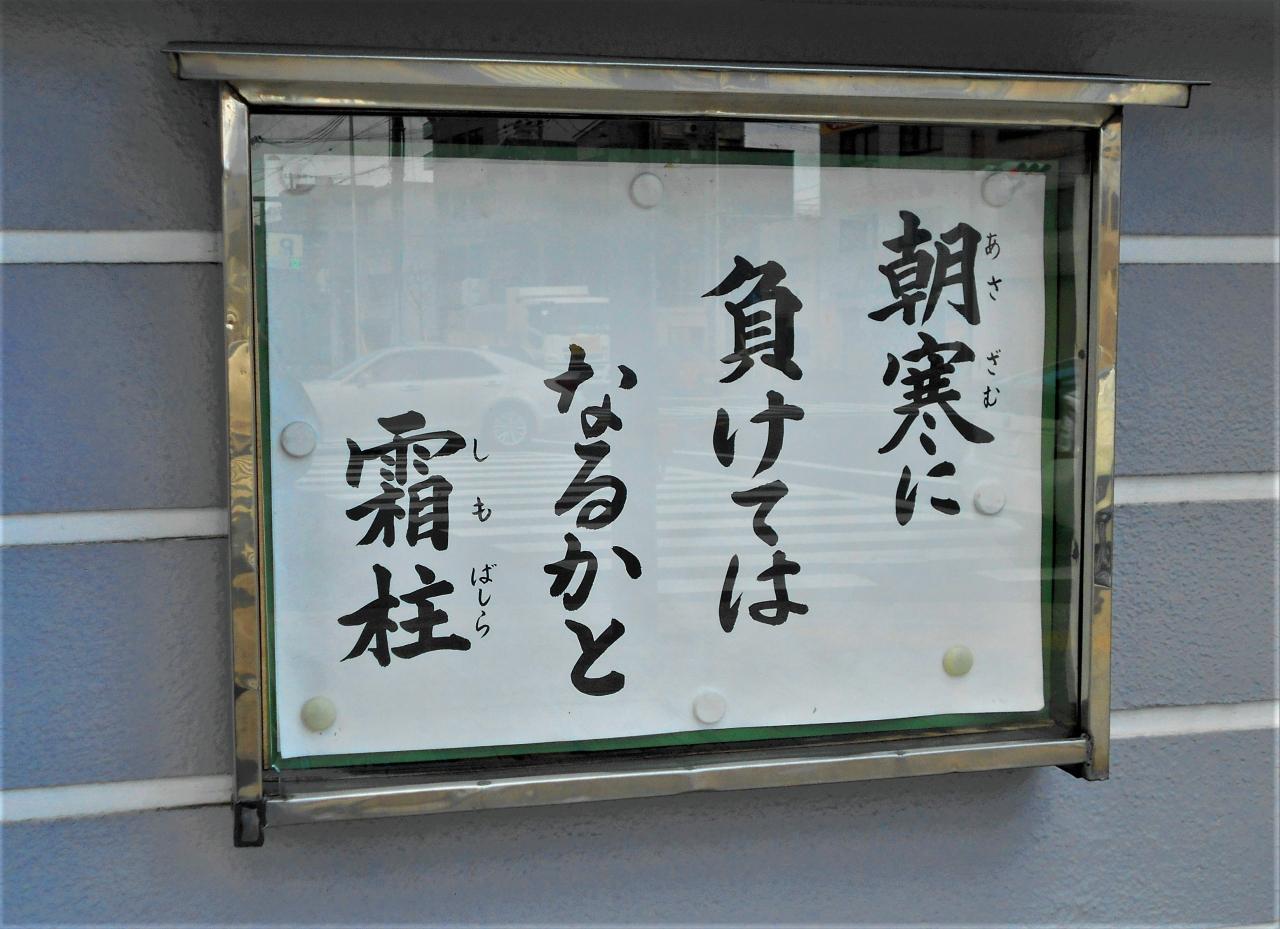 朝寒に
あさざむ
負けては
なるかと
霜柱
しもばしら
P